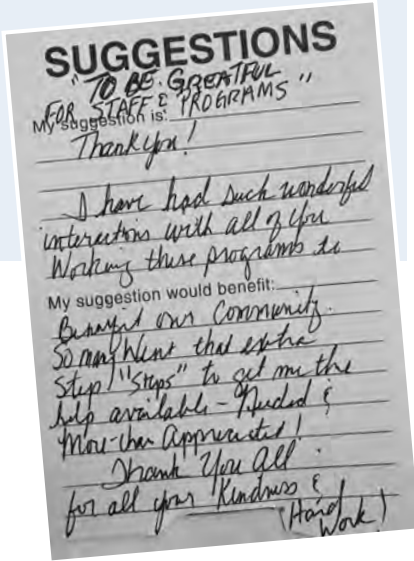 SUGGESTIONS
"TO BE GREATFUL
FOR STAFF & PROGRAMS"
My suggestion is:
Thank you!
I have had such wonderful
interactions with all of you
Working these programs to
My suggestion would benefit:
Benefit our Community.
So many Went that extra
Step/"Steps" to get me the
help available - Needed &
More-than Appreciated!
Thank You All
for all your Kindness &
(Hard
Work)